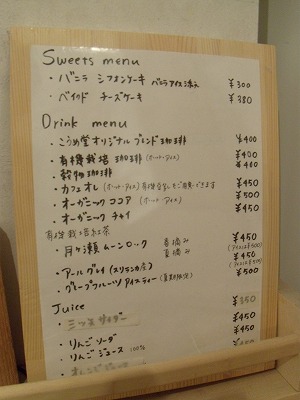 Sweets menu
・バニラ シフォンケーキ バニラアイス添え ¥300
・ベイクド チーズケーキ ¥380
Drink menu
・こうめ堂オリジナルブレンド珈琲 ¥400
・有機栽培 珈琲 (ホット・アイス) ¥400
・穀物珈琲 ¥400
・カフェオレ (ホット・アイス) 有機豆乳もご用意できます ¥450
・オーガニック ココア (ホット・アイス) ¥500
・オーガニック チャイ ¥450
有機栽培紅茶
・月ヶ瀬ムーンロック 春摘み ¥450
夏摘み ¥450
・アールグレイ (スリランカ産)
・グレープフルーツアイスティー (夏期限定) ¥500
Juice
三ツ矢サイダー ¥350
・りんごソーダ ¥450
・りんごジュース 100% ¥450